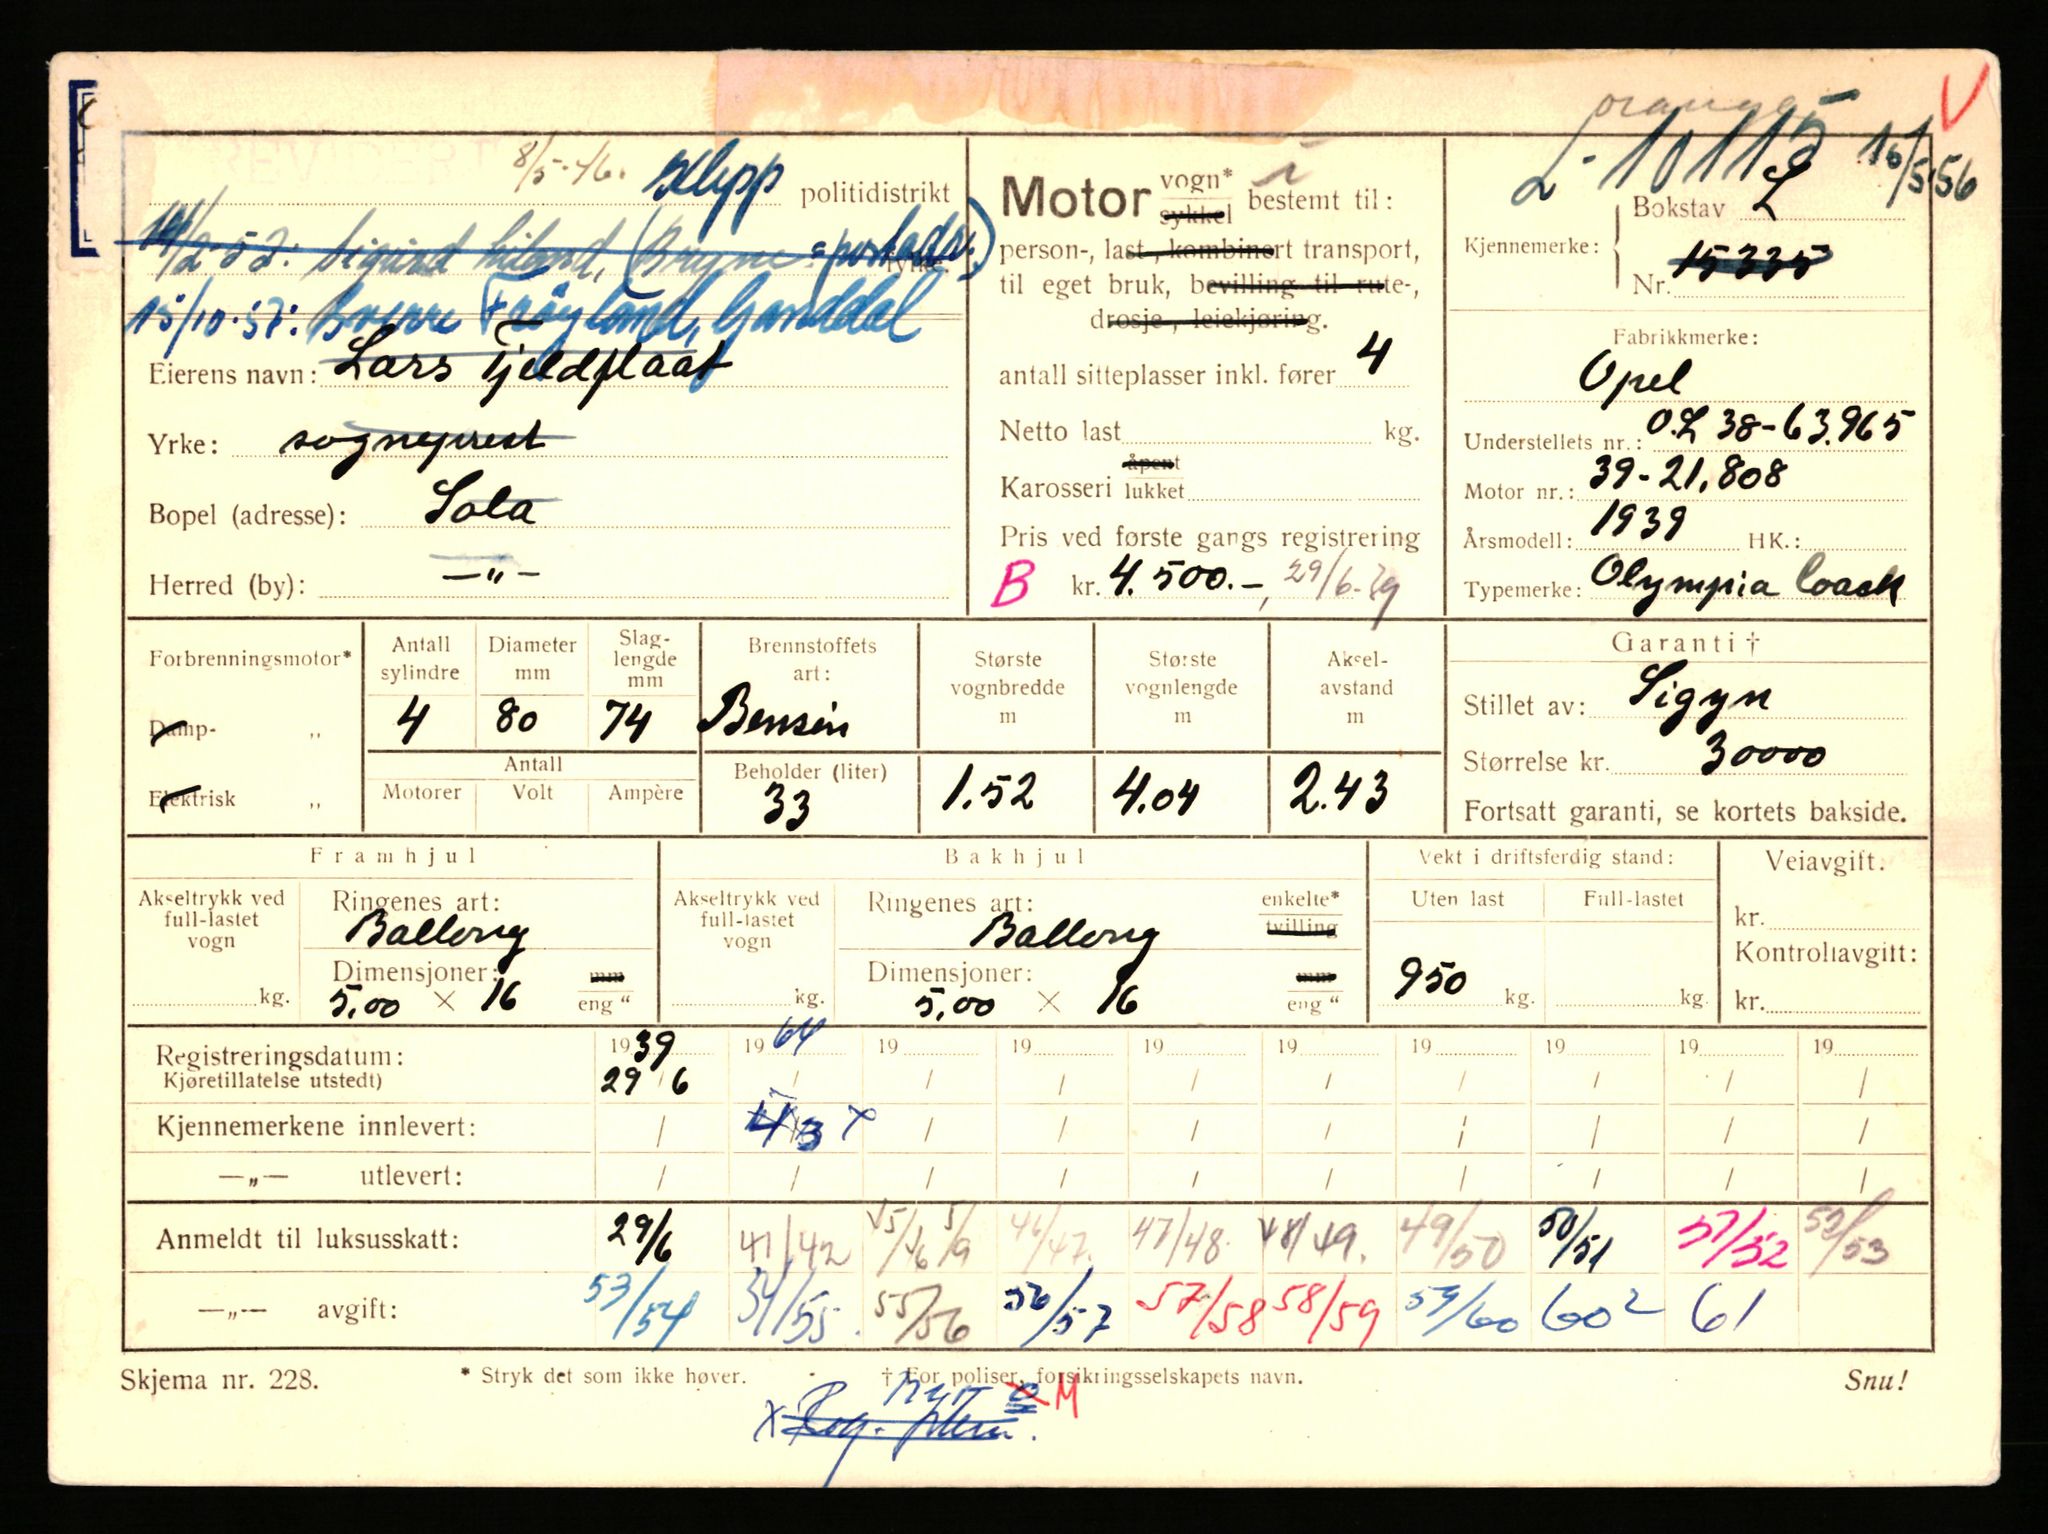 orange
L-10115 16/5-56
8/5-46. Klepp politidistrikt
14/2-52: Sigurd (Bryne = postadr.)
fylke.
15/10-57: Sverre Frøyland, Ganddal
Eierens navn: Lars Tjeldflaat
Yrke: sogneprest
Bopel (adresse): Sola
Herred (by): —"—
Motor vogn* sykkel bestemt til:
person-, last-, kombinert transport,
til eget bruk, bevilling til rute-,
drosje-, leiekjøring.
antall sitteplasser inkl. fører 4
Netto last kg.
Karosseri åpent lukket
Pris ved første gangs registrering
B kr. 4.500.-, 29/6-39
Kjennemerke: Bokstav L
Nr. 15335
Fabrikkmerke:
Opel
Understellets nr.: O.L 38-63.965
Motor nr.: 39-21.808
Årsmodell: 1939 HK.:
Typemerke: Olympia Coach
Forbrenningsmotor*
Damp- „
Elektrisk „
Antall sylindre 4
Diameter mm 80
Slaglengde mm 74
Antall
Motorer Volt Ampère
Brennstoffets art:
Bensin
Beholder (liter)
33
Største vognbredde m 1.52
Største vognlengde m 4.04
Akselavstand m 2.43
Garanti †
Stillet av: Sigyn
Størrelse kr. 30000
Fortsatt garanti, se kortets bakside.
Framhjul
Akseltrykk ved full-lastet vogn kg.
Ringenes art:
Ballong
Dimensjoner: mm
5,00 × 16 eng "
Bakhjul
Akseltrykk ved full-lastet vogn kg.
Ringenes art: enkelte* tvilling
Ballong
Dimensjoner: mm
5,00 × 16 eng "
Vekt i driftsferdig stand:
Uten last Full-lastet
950 kg. kg.
Veiavgift:
kr.
Kontrollavgift:
kr.
Registreringsdatum: 1939 1964 19 19 19 19 19 19 19 19
Kjøretillatelse utstedt) 29/6 / / / / / / / / /
Kjennemerkene innlevert: / 4/3 x / / / / / / / /
—„— utlevert: / / / / / / / / / /
Anmeldt til luksusskatt: 29/6 41/42 45/46 5/9 46/47. 47/48. 48/49. 49/50 50/51 51/52 52/53
—„— avgift: 53/54 54/55. 55/56 56/57 57/58 58/59 59/60 60² 61
Skjema nr. 228. * Stryk det som ikke høver. † For poliser, forsikringsselskapets navn. Snu!
M